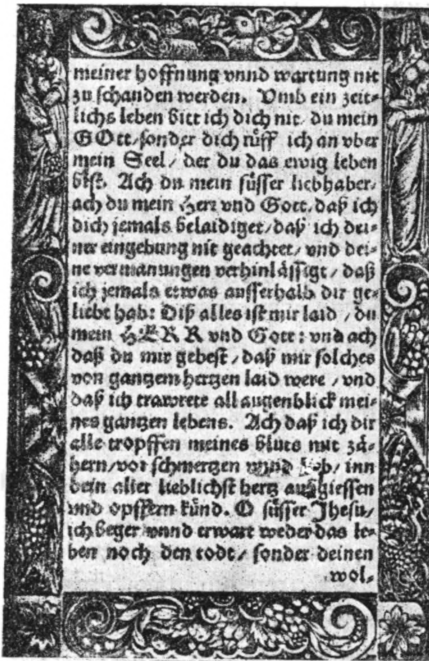 meiner hoffnung vnnd wartung nit
zu schanden werden. Vmb ein zeit⸗
lichs leben bitt ich dich nit / du mein
GOtt / sonder dich rüff ich an vber
mein Seel / der du das ewig leben
bist. Ach du mein süsser liebhaber /
ach du mein Herr vnd Gott / daß ich
dich jemals belaidiget / daß ich dei⸗
ner eingebung nit geachtet / vnd dei⸗
ne vermanungen verhinlässigt / daß
ich jemals etwas ausserhalb dir ge⸗
liebt hab: Diß alles ist mir laid / du
mein HERR vnd Gott: vnd ach
daß du mir gebest / daß mir solches
von gantzem hertzen laid were / vnd
daß ich trawrete all augenblick mei⸗
nes gantzen lebens. Ach daß ich dir
alle tropffen meines bluts mit zä⸗
hern / vor schmertzen vnnd inn
dein aller lieblichst hertz außgiessen
vnd opffern künd. O süsser Jhesu /
ich beger vnnd erwart weder das le⸗
ben noch den todt / sonder deinen
wol⸗